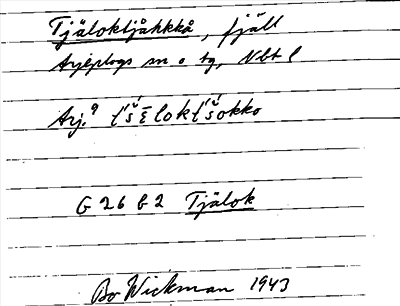 Tjäloktjåhkkå, fjäll
Arjeplogs sn o tg, Nbt l
Arj. t́š́ēlokt́š́okko
G 26 b 2 Tjälok
Bo Wickman 1943